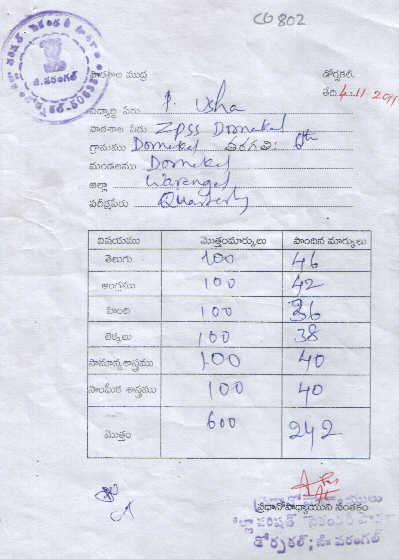 CG 802
పాఠశాల ముద్ర
డోర్నకల్.
తేది: 4.11.2011
విద్యార్థి పేరు P. Usha
పాఠశాల పేరు ZPSS Dornakal
గ్రామము Dornakal తరగతి: 6th
మండలము Dornakal
జిల్లా Warangal
పరీక్షపేరు Quarterly
విషయము మొత్తంమార్కులు పొందిన మార్కులు
తెలుగు 100 46
ఆంగ్లము 100 42
హింది 100 36
లెక్కలు 100 38
సామాన్యశాస్త్రము 100 40
సాంఘీక శాస్త్రము 100 40
మొత్తం 600 242
ప్రధానోపాధ్యాయుని సంతకం
డోర్నకల్; జి॥ వరంగల్